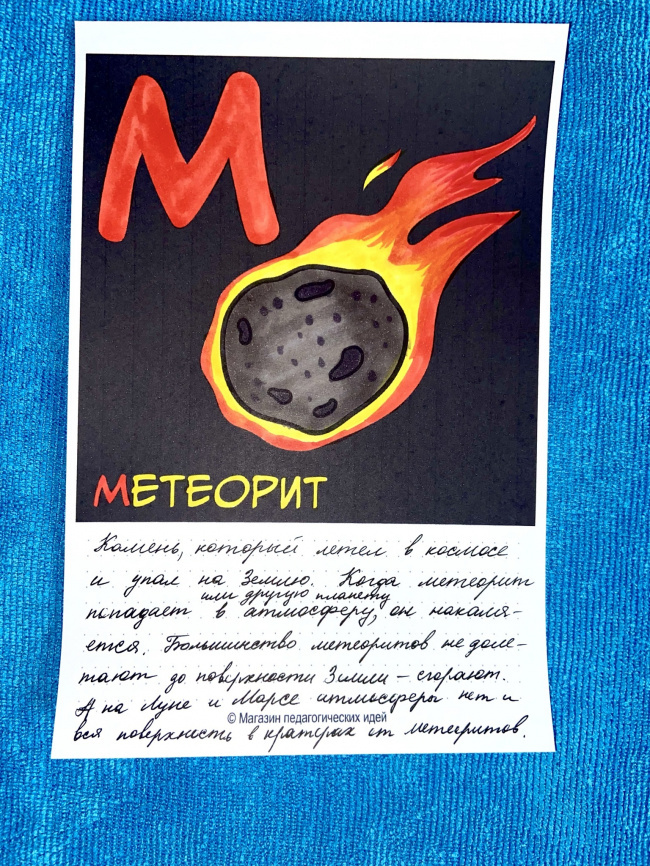 М
МЕТЕОРИТ
Камень, который летел в космосе
и упал на Землю. Когда метеорит
или другую планету
попадает в атмосферу, он накаля-
ется. Большинство метеоритов не доле-
тают до поверхности Земли – сгорают.
А на Луне и Марсе атмосферы нет и
© Магазин педагогических идей
вся поверхность в кратерах от метеоритов.